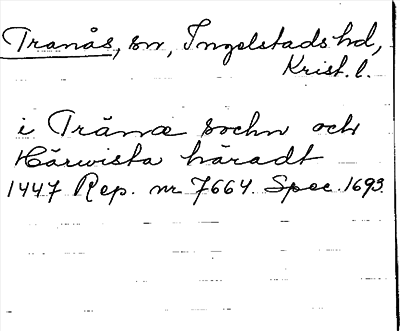 Tranås, sn, Ingelstads hd,
Krist. l.
i Tränæ sochn och
Härwista häradt
1447 Rep. nr 7664. Spec. 1693.